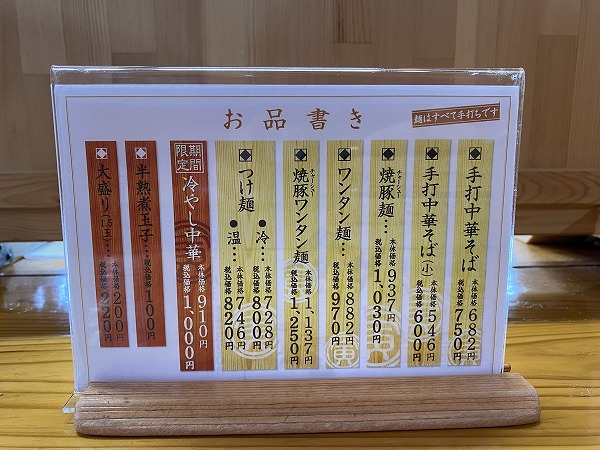 お品書き
麺はすべて手打ちです
手打中華そば
本体価格 682円
税込価格 750円
手打中華そば(小)
本体価格 546円
税込価格 600円
チャーシュー
焼豚麺…
本体価格 937円
税込価格 1,030円
ワンタン麺…
本体価格 882円
税込価格 970円
チャーシュー
焼豚ワンタン麺
本体価格 1,137円
税込価格 1,250円
つけ麺
●冷…
本体価格 728円
税込価格 800円
●温…
本体価格 746円
税込価格 820円
期間限定
冷やし中華
本体価格 910円
税込価格 1,000円
半熟煮玉子…
税込価格 100円
大盛り(1.5玉)…
本体価格 200円
税込価格 220円